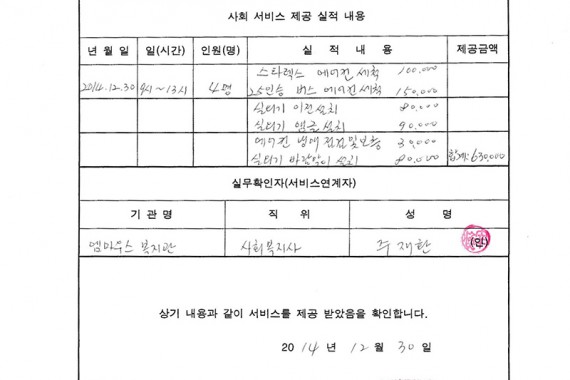 사회 서비스 제공 실적 내용
년 월 일 일(시간) 인원(명) 실 적 내 용 제공금액
스타렉스 에어컨 세척 100,000
2014.12.30 9시~13시 4명 25인승 버스 에어컨 세척 150,000
실터기 이전설치 80,000
실터기 앰프 설치 90,000
에어컨 냉매 점검및보충 30,000
실터기 바람막이 설치 80,000 합계: 630,000
실무확인자(서비스연계자)
기 관 명 직 위 성 명
엠마우스 복지관 사회복지사 주재환 (인)
상기 내용과 같이 서비스를 제공 받았음을 확인합니다.
2014 년 12 월 30 일